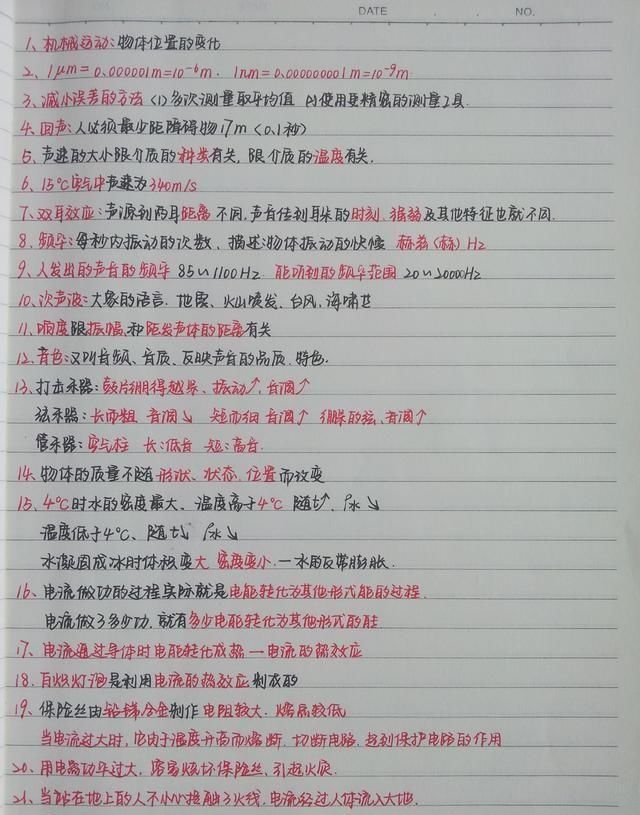 DATE . . NO.
1、机械运动：物体位置的变化
2、1μm=0.000001m=10⁻⁶m. 1nm=0.000000001m=10⁻⁹m
3、减小误差的方法 (1)多次测量取平均值 (2)使用更精密的测量工具.
4、回声：人必须最少距障碍物17m（0.1秒）
5、声速的大小跟介质的种类有关，跟介质的温度有关.
6、15℃空气中声速为340m/s
7、双耳效应：声源到两耳距离不同，声音传到耳朵的时刻、强弱及其他特征也就不同.
8、频率：每秒内振动的次数、描述物体振动的快慢 赫兹(赫) Hz
9、人发出的声音的频率 85~1100Hz 能听到的频率范围 20~20000Hz
10、次声波：大象的语言、地震、火山喷发、台风、海啸
11、响度跟振幅、和距发声体的距离有关
12、音色：又叫音频、音质、反映声音的品质、特色.
13、打击乐器：鼓片绷得越紧、振动↑、音调↑
弦乐器：长而粗 音调↓ 短而细 音调↑ 绷紧的弦、音调↑
管乐器：空气柱 长：低音 短：高音.
14、物体的质量不随形状、状态、位置而改变
15、4℃时水的密度最大、温度高于4℃ 随t↑、ρ水↓
温度低于4℃、随t↓ ρ水↓
水凝固成冰时体积变大 密度变小.—水的反常膨胀.
16、电流做功的过程实际就是电能转化为其他形式能的过程.
电流做了多少功、就有多少电能转化为其他形式的能
17、电流通过导体时电能转化成热—电流的热效应
18、白炽灯泡是利用电流的热效应制成的
19、保险丝由铅锑合金制作 电阻较大、熔点较低
当电流过大时，它由于温度升高而熔断、切断电路、起到保护电路的作用
20、用电器功率过大、容易烧坏保险丝、引起火灾.
21、当站在地上的人不小心接触了火线、电流经过人体流入大地.